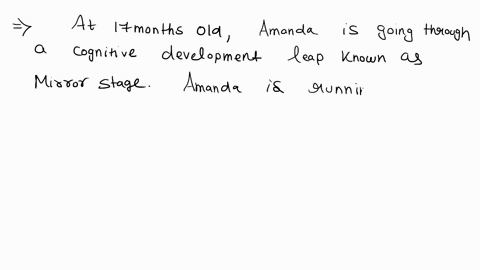 ⇒ At 17months old, Amanda is going through
a cognitive development leap known as
Mirror stage. Amanda is runnin